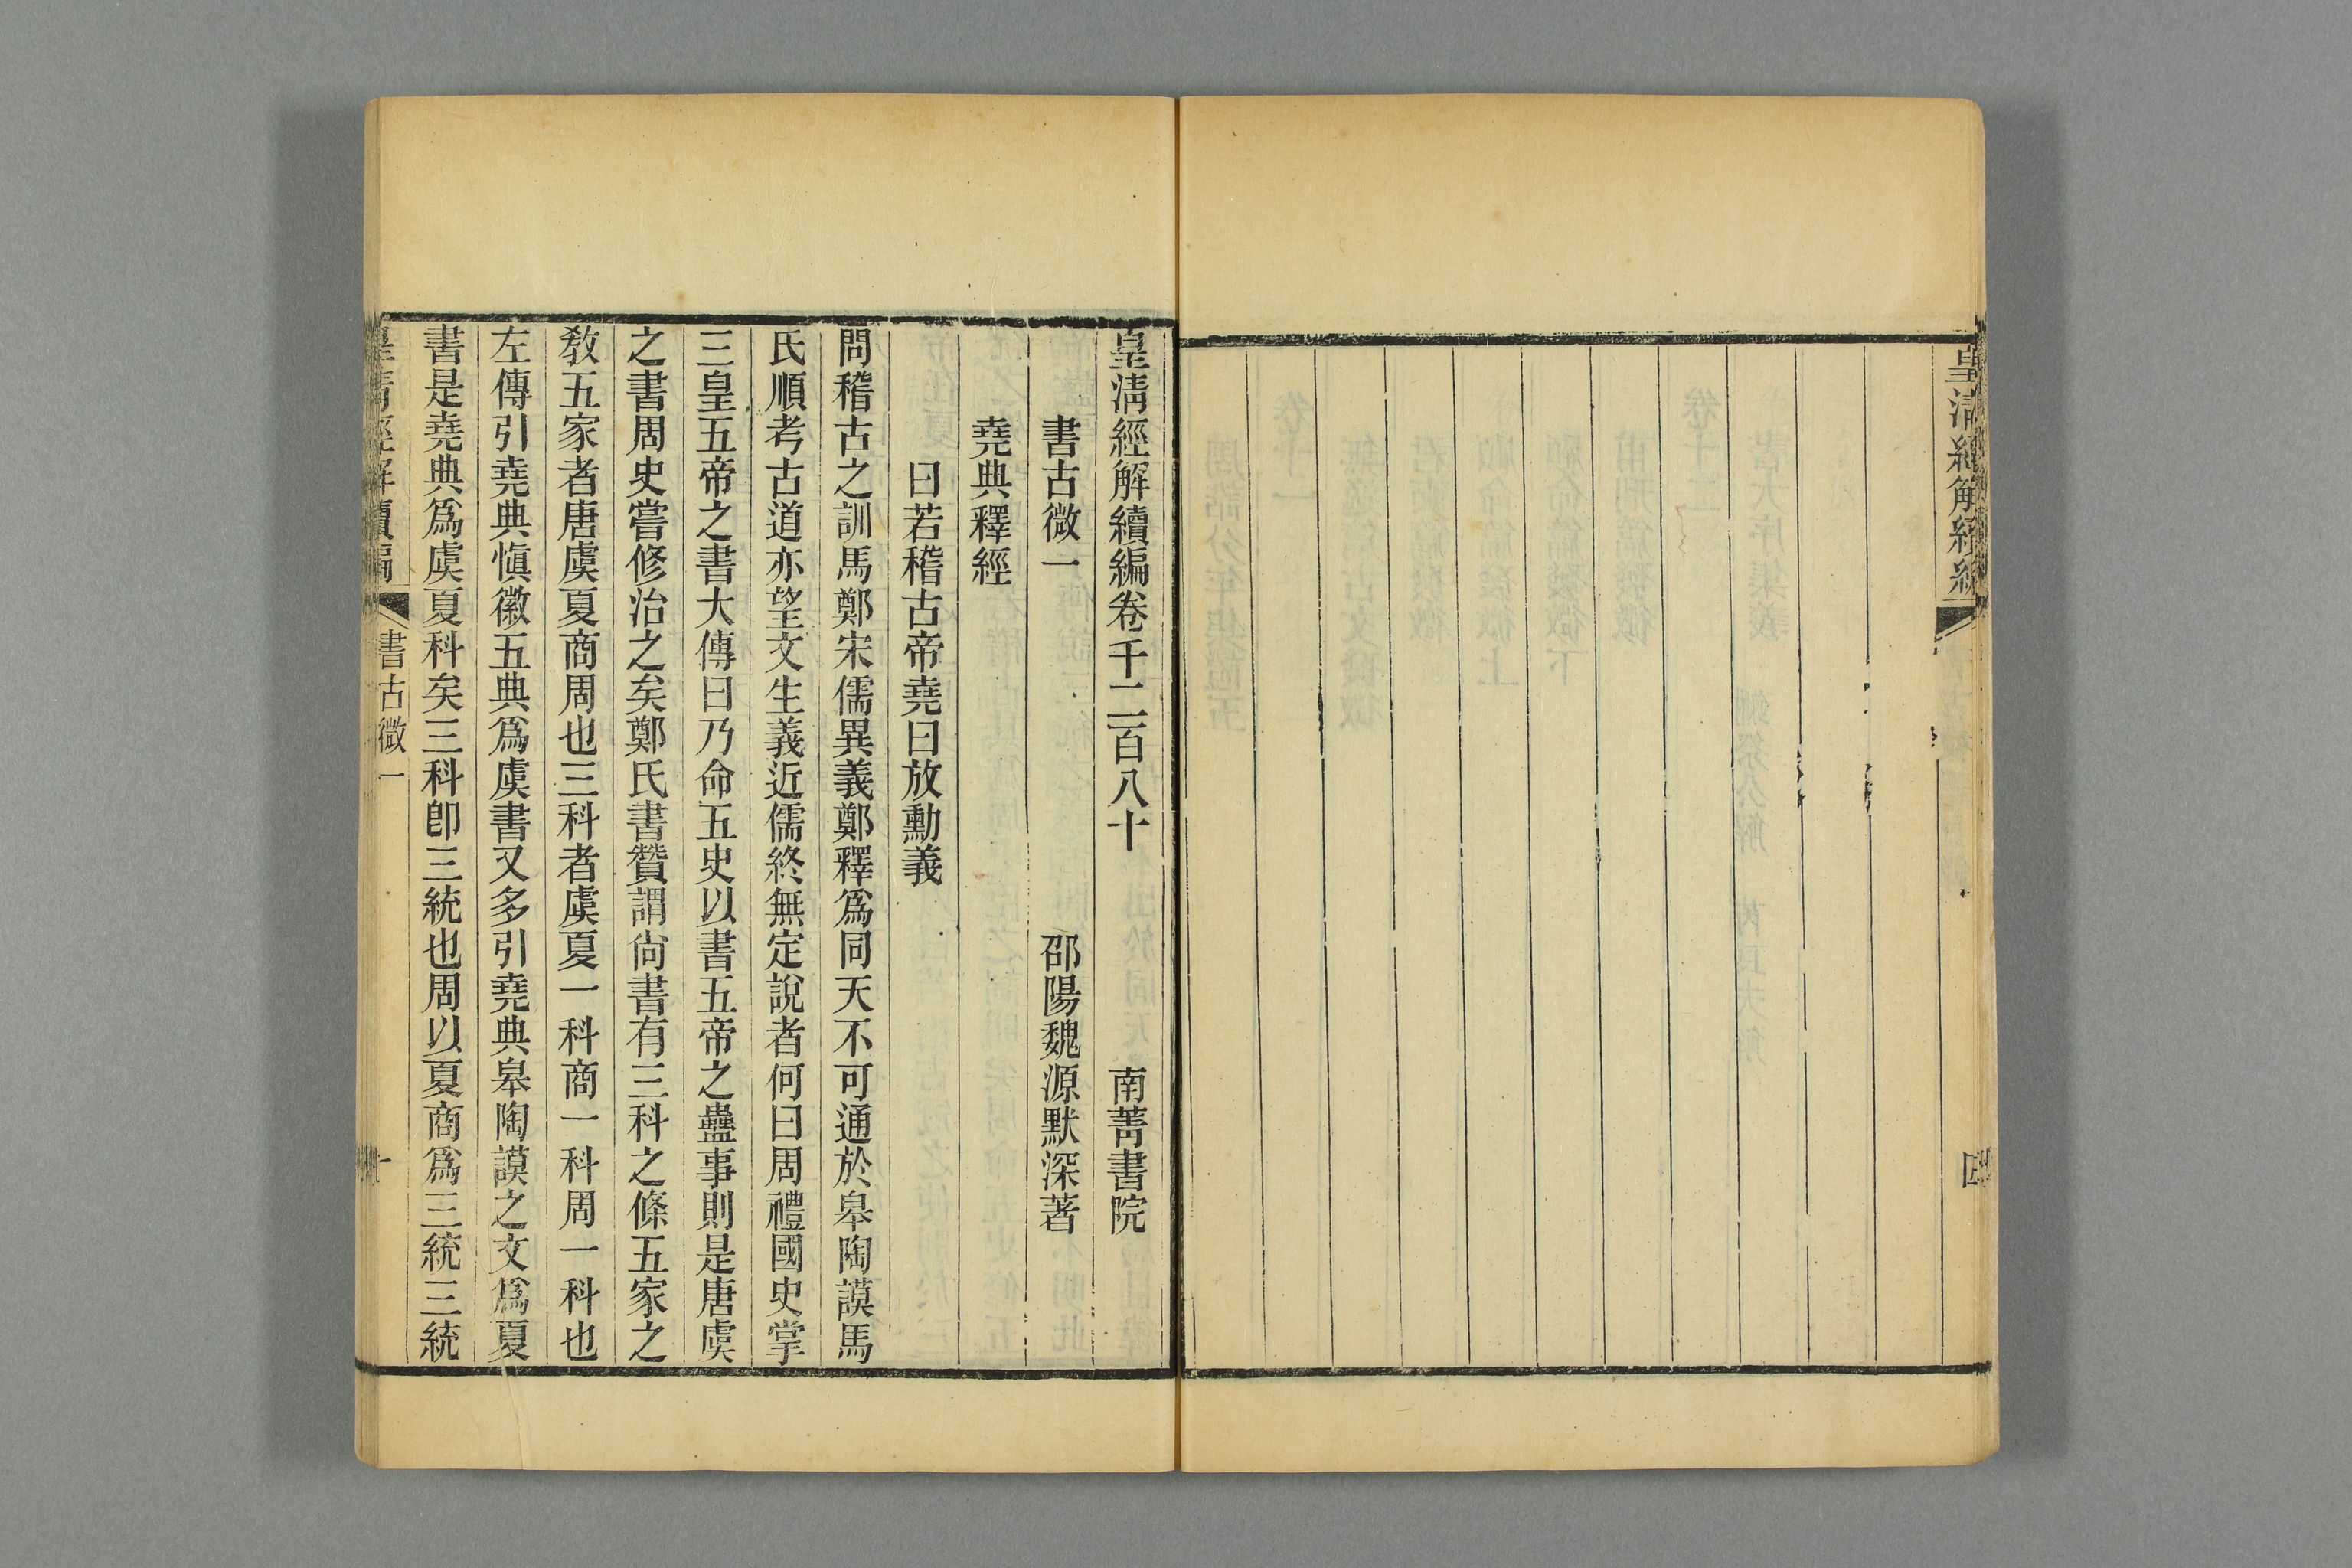 皇清經解續編
四
皇清經解續編卷千二百八十　南菁書院
書古微一　邵陽魏源默深著
堯典釋經
曰若稽古帝堯曰放勳義
問稽古之訓馬鄭宋儒異義鄭釋爲同天不可通於皋陶謨馬
氏順考古道亦望文生義近儒終無定說者何曰周禮國史掌
三皇五帝之書大傳曰乃命五史以書五帝之蠱事則是唐虞
之書周史嘗修治之矣鄭氏書贊謂尙書有三科之條五家之
敎五家者唐虞夏商周也三科者虞夏一科商一科周一科也
左傳引堯典愼徽五典爲虞書又多引堯典皋陶謨之文爲夏
書是堯典爲虞夏科矣三科卽三統也周以夏商爲三統三統
皇清經解續編　書古微一　一